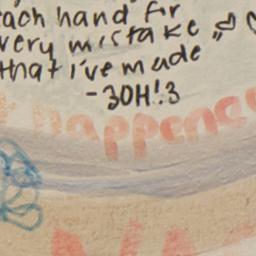 each hand for
very mistake
that I've made
-3OH!3
happened